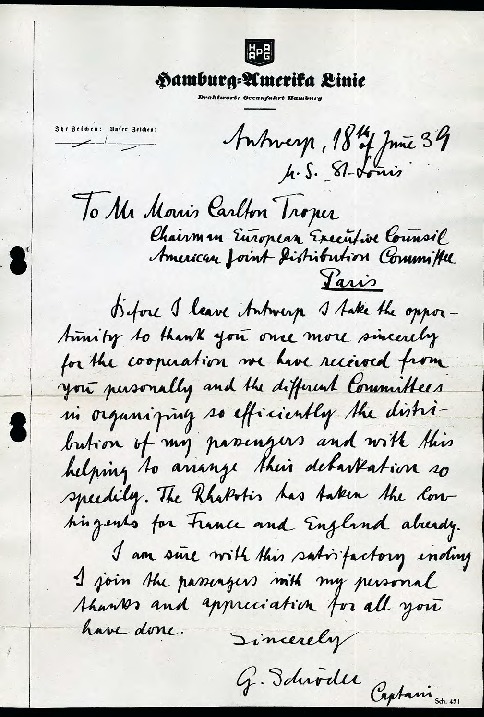 HAPAG
Hamburg-Amerika Linie
Drahtwort: Oceanfahrt Hamburg
Ihr Zeichen: Unser Zeichen:
Antwerp, 18th of June 39
M. S. St. Louis
To Mr Morris Carlton Troper
Chairman European Executive Counsil
American Joint Distribution Committee
Paris
Before I leave Antwerp I take the oppor-
tunity to thank you once more sincerely
for the cooperation we have received from
you personally and the different Committees
in organizing so efficiently the distri-
bution of my passengers and with this
helping to arrange their debarkation so
speedily. The Rhakotis has taken the con-
tingents for France and England already.
I am sure with this satisfactory ending
I join the passengers with my personal
thanks and appreciation for all you
have done.
Sincerely
G. Schröder
Captain
Sch. 471